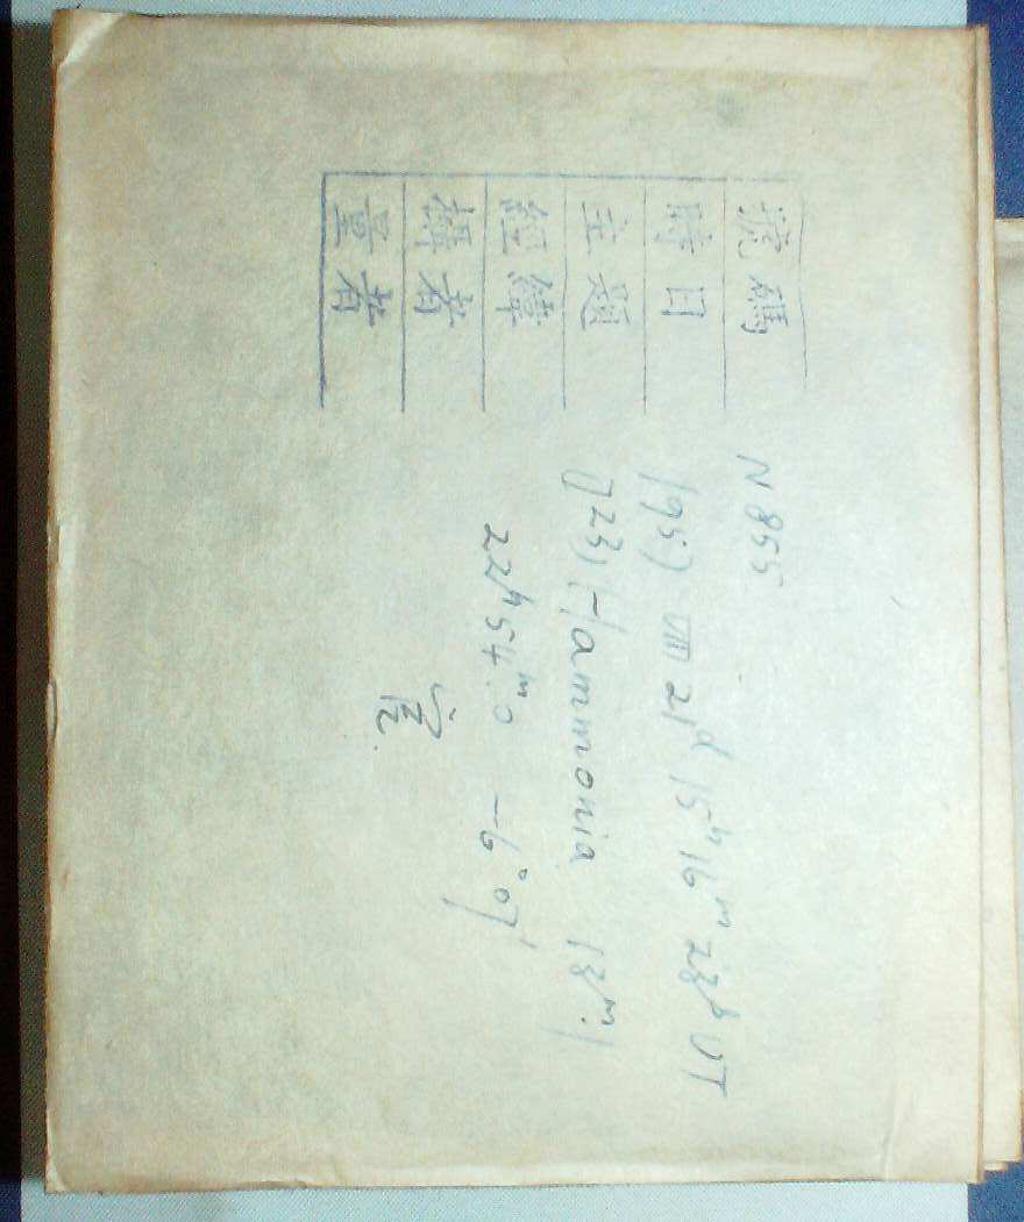 號碼 N 855
時日 1957 VIII 21ᵈ 15ʰ 16ᵐ 23ˢ UT
主題 (723) Hammonia 13ᵐ.1
經緯 22ʰ54ᵐ.0 -6°07′
攝者
量者